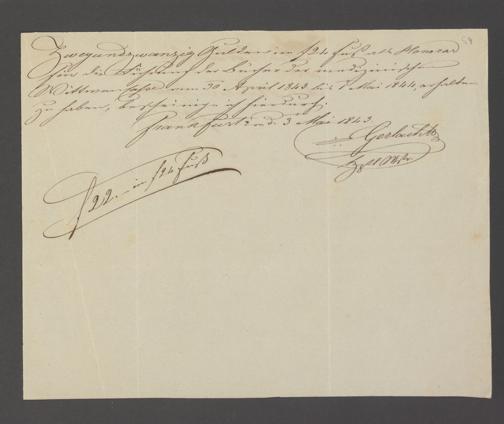 Zweyundzwanzig Gulden im f24 Fuß als Honorar
für die Führung der Bücher der medizinischen
Wittwen Casse vom 30. April 1843 bis 1 Mai 1844, erhalten
zu haben, bescheinige ich hierdurch;
Frankfurt 3 Mai 1843.
Gerlach
f 22 – im f24 Fuß